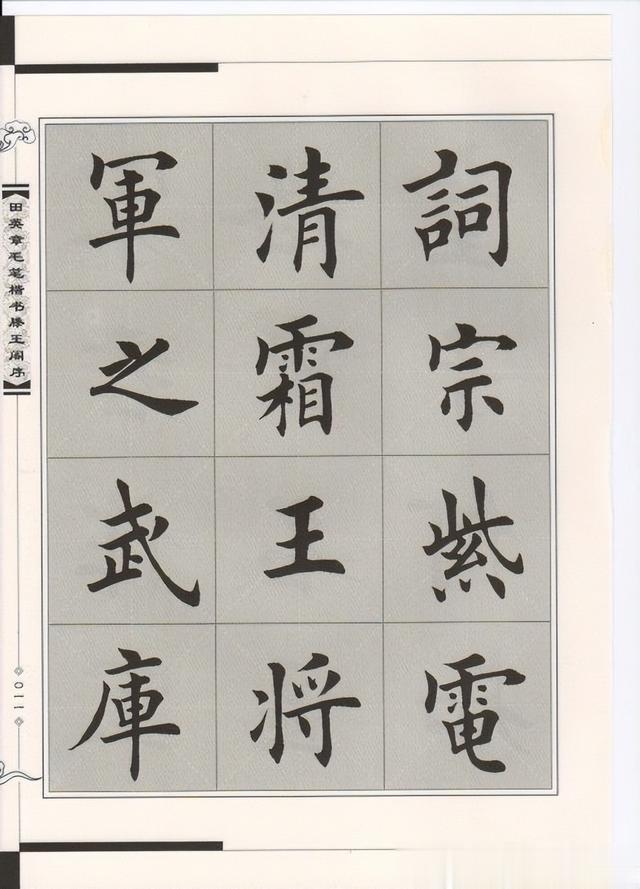 詞宗紫電
清霜王将
軍之武庫
田英章毛笔楷书滕王阁序
〇一一